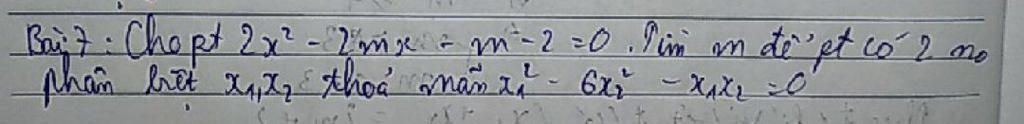 Bài 7 : Cho pt 2x² - 2mx - m - 2 = 0 . Tìm m để pt có 2 no
phân biệt x₁, x₂ thoả mãn x₁² - 6x₂² - x₁x₂ = 0